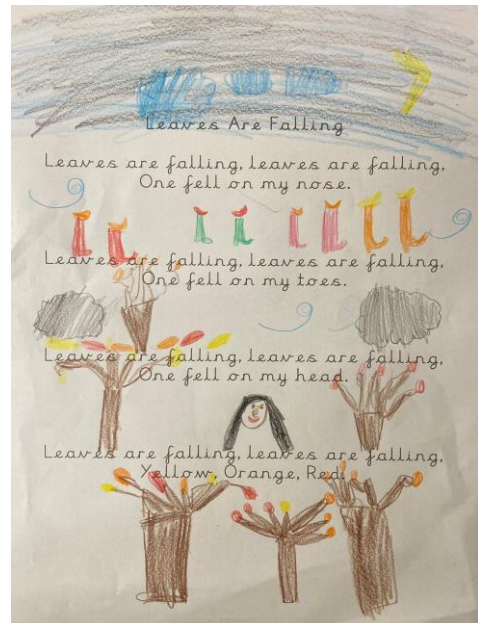 Leaves Are Falling
Leaves are falling, leaves are falling,
One fell on my nose.
Leaves are falling, leaves are falling,
One fell on my toes.
Leaves are falling, leaves are falling,
One fell on my head.
Leaves are falling, leaves are falling,
Yellow, Orange, Red.